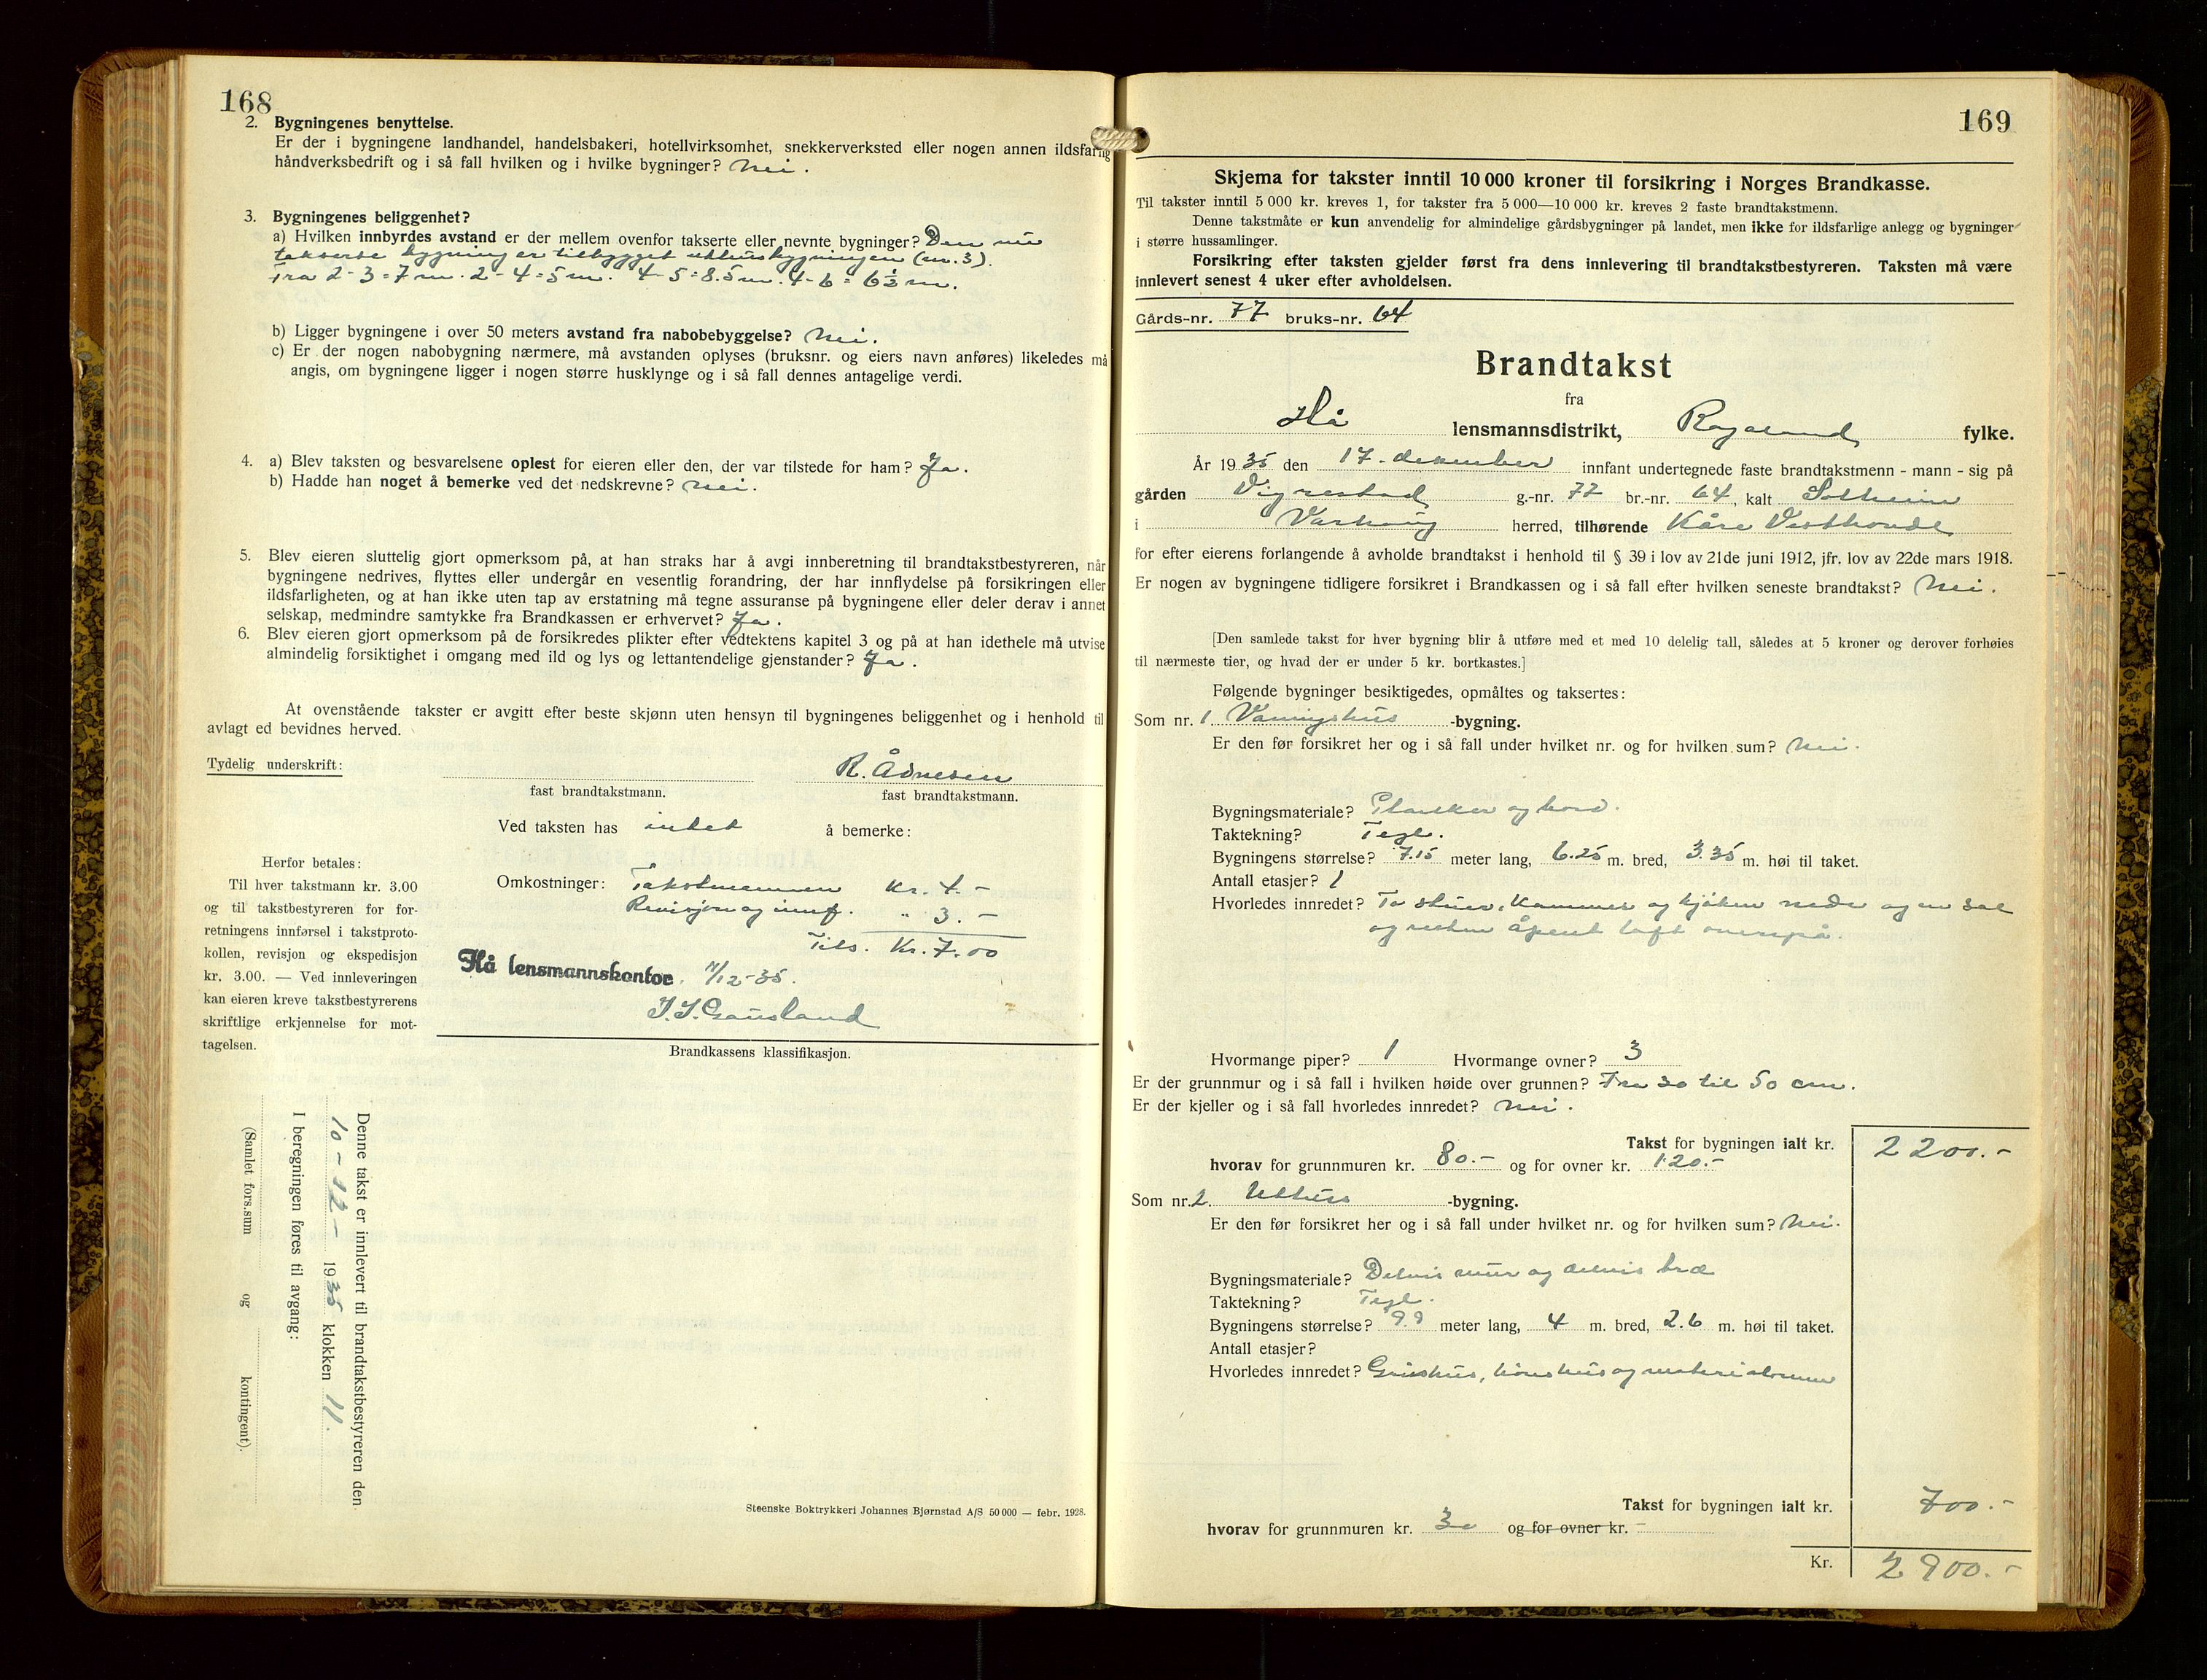 168
2. Bygningenes benyttelse.
Er der i bygningene landhandel, handelsbakeri, hotellvirksomhet, snekkerverksted eller nogen annen ildsfarlig
håndverksbedrift og i så fall hvilken og i hvilke bygninger? Nei.
3. Bygningenes beliggenhet?
a) Hvilken innbyrdes avstand er der mellem ovenfor takserte eller nevnte bygninger? Den nu
takserte bygning er tilbygget uthusbygningen (nr. 3).
Fra 2-3 = 7 m. 2-4 = 5 m. 4-5 = 8.5 m. 4-6 = 6½ m.
b) Ligger bygningene i over 50 meters avstand fra nabobebyggelse? Nei.
c) Er der nogen nabobygning nærmere, må avstanden oplyses (bruksnr. og eiers navn anføres) likeledes må
angis, om bygningene ligger i nogen større husklynge og i så fall dennes antagelige verdi.
4. a) Blev taksten og besvarelsene oplest for eieren eller den, der var tilstede for ham? Ja.
b) Hadde han noget å bemerke ved det nedskrevne? Nei.
5. Blev eieren sluttelig gjort opmerksom på, at han straks har å avgi innberetning til brandtakstbestyreren, når
bygningene nedrives, flyttes eller undergår en vesentlig forandring, der har innflydelse på forsikringen eller
ildsfarligheten, og at han ikke uten tap av erstatning må tegne assuranse på bygningene eller deler derav i annet
selskap, medmindre samtykke fra Brandkassen er erhvervet? Ja.
6. Blev eieren gjort opmerksom på de forsikredes plikter efter vedtektens kapitel 3 og på at han idethele må utvise
almindelig forsiktighet i omgang med ild og lys og lettantendelige gjenstander? Ja.
At ovenstående takster er avgitt efter beste skjønn uten hensyn til bygningenes beliggenhet og i henhold til
avlagt ed bevidnes herved.
Tydelig underskrift:
R. Ådnesen
fast brandtakstmann. fast brandtakstmann.
Ved taksten has intet å bemerke:
Herfor betales:
Til hver takstmann kr. 3.00
og til takstbestyreren for for-
retningens innførsel i takstproto-
kollen, revisjon og ekspedisjon
kr. 3.00. — Ved innleveringen
kan eieren kreve takstbestyrerens
skriftlige erkjennelse for mot-
tagelsen.
Omkostninger: Takstmannen Kr. 4.-
Revisjon og innf. " 3.-
Tils. Kr. 7.00
Hå lensmannskontor. 11/12-35.
J. J. Gausland
Brandkassens klassifikasjon.
Denne takst er innlevert til brandtakstbestyreren den
10-12- 1935 klokken 11.
I beregningen føres til avgang:
(Samlet fors.sum og kontingent).
Steenske Boktrykkeri Johannes Bjørnstad A/S 50 000 — febr. 1928.
169
Skjema for takster inntil 10 000 kroner til forsikring i Norges Brandkasse.
Til takster inntil 5 000 kr. kreves 1, for takster fra 5 000—10 000 kr. kreves 2 faste brandtakstmenn.
Denne takstmåte er kun anvendelig for almindelige gårdsbygninger på landet, men ikke for ildsfarlige anlegg og bygninger
i større hussamlinger.
Forsikring efter taksten gjelder først fra dens innlevering til brandtakstbestyreren. Taksten må være
innlevert senest 4 uker efter avholdelsen.
Gårds-nr. 77 bruks-nr. 64
Brandtakst
fra
Hå lensmannsdistrikt, Rogaland fylke.
År 1935 den 17. desember innfant undertegnede faste brandtakstmenn - mann - sig på
gården Vigrestad g.-nr. 77 br.-nr. 64, kalt Solheim
i Varhaug herred, tilhørende Kåre
for efter eierens forlangende å avholde brandtakst i henhold til § 39 i lov av 21de juni 1912, jfr. lov av 22de mars 1918.
Er nogen av bygningene tidligere forsikret i Brandkassen og i så fall efter hvilken seneste brandtakst? Nei.
[Den samlede takst for hver bygning blir å utføre med et med 10 delelig tall, således at 5 kroner og derover forhøies
til nærmeste tier, og hvad der er under 5 kr. bortkastes.]
Følgende bygninger besiktigedes, opmåltes og taksertes:
Som nr. 1 Våningshus -bygning.
Er den før forsikret her og i så fall under hvilket nr. og for hvilken sum? Nei.
Bygningsmateriale? Planker og bord.
Taktekning? Tegl.
Bygningens størrelse? 7.15 meter lang, 6.25 m. bred, 3.35 m. høi til taket.
Antall etasjer? 1
Hvorledes innredet? To stuer, kammer og kjøken nede og en sal
og resten åpent loft ovenpå.
Hvormange piper? 1 Hvormange ovner? 3
Er der grunnmur og i så fall i hvilken høide over grunnen? Fra 30 til 50 cm.
Er der kjeller og i så fall hvorledes innredet? Nei.
Takst for bygningen ialt kr. 2200.-
hvorav for grunnmuren kr. 80.- og for ovner kr. 120.-
Som nr. 2. Uthus -bygning.
Er den før forsikret her og i så fall under hvilket nr. og for hvilken sum? Nei.
Bygningsmateriale? Delvis mur og delvis tre
Taktekning? Tegl.
Bygningens størrelse? 9.9 meter lang, 4 m. bred, 2.6 m. høi til taket.
Antall etasjer?
Hvorledes innredet? Grishus, hønshus og materialrum
Takst for bygningen ialt kr. 700.-
hvorav for grunnmuren kr. 30 og for ovner kr. -
Kr. 2900.-